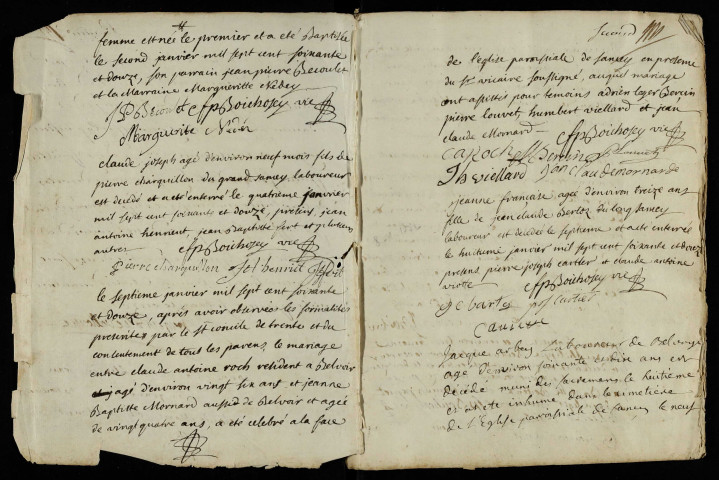 femme est née le premier et a été Baptisée
le second janvier mil sept cent soixante
et douze, son parrain jean pierre Becoulet
et la Marraine Margueritte Nedey
JP Becoulet cfp Boichosey vic
Marguerite Nedey
claude joseph agé d'environ neuf mois fils de
pierre charquillon du grand sancey laboureur
est decedé et a eté enterré le quatrieme janvier
mil sept cent soixante et douze, presens jean
antoine hennert, jean Baptiste fert et plusieurs
autres cfp Boichosey vic
pierre charquillon
le septieme janvier mil sept cent soixante
et douze, apres avoir observées les formalités
prescrites par le st concile de trente et du
consentement de tout les parens, le mariage
entre claude antoine roch residant a Belvoir
agé d'environ vingt six ans et jeanne
Baptiste Mornard aussi de Belvoir et agée
de vingt quatre ans, a eté celebré a la face
second
de l'eglise paroissiale de sancey en presence
du sr vicaire soussigné, auquel mariage
ont assistés pour temoins adrien lager
pierre louvet, humbert viellard et jean
claude Mornard
cfp Boichosey vic
C A Roch
Jh viellard Jean Claude mornard
jeanne francoise, agé d'environ treize ans
fille de jean claude Berlot du long sancey
laboureur est decedée le septieme et a eté enterrée
le huitieme janvier mil sept cent soixante et douze
presens pierre joseph cartier et claude antoine
viote
cfp Boichosey vic
C A viote
Jacque arbey
agé d'environ soixante et dix ans est
décédé muni des sacremens le huitieme
et a été inhumé dans le cimetière
de l'Eglise paroissiale de sancey le neuf